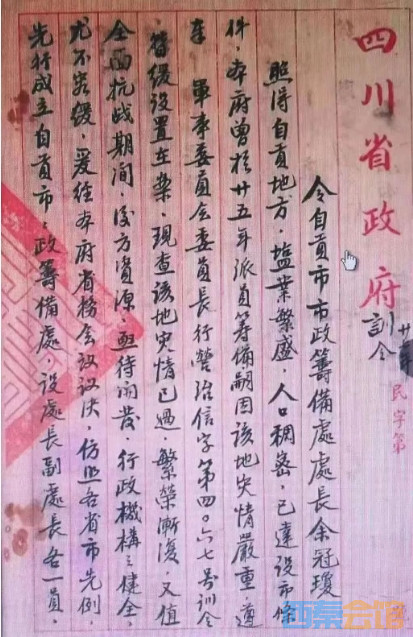 四川省政府訓令
民字第
令自貢市市政籌備處處長余冠瓊
照得自貢地方，塩業繁盛，人口稠密，已達設市條
件，本府曾於廿五年派員籌備嗣因該地災情嚴重，遵
奉 軍事委員会委員長行營治信字第四〇六七号訓令
暫緩設置在案，現查該地災情已過，繁榮漸復，又值
全面抗战期间，后方資源，亟待開發，行政機構之健全，
尤不容緩，爰經本府省務会议议决，仿照各省市先例，
先行成立自貢市，政籌備處，設處長副處長各一員，
西秦会馆